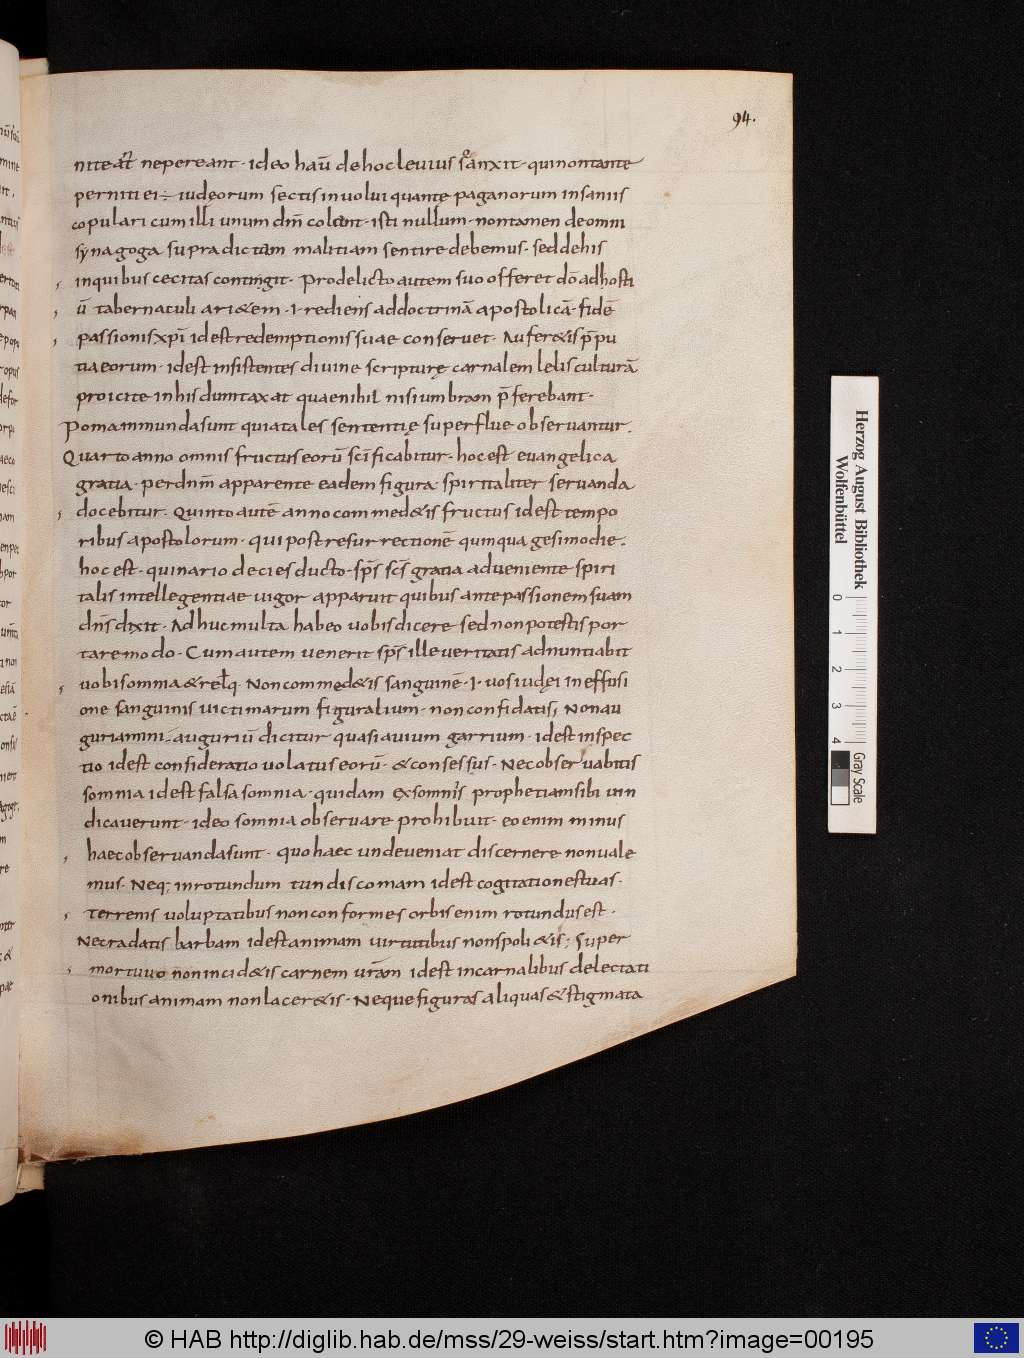 94.
niteat᷒ nepereant· ideo hau̅ dehocleuius sanxit· quinontante
perniti ei÷ iudeorum sectis inuolui quante paganorum insaniis
copulari cum illi unum dm̅ colunt· isti nullum· nontamen deomni
synagoga supradictam malitiam sentire debemus· seddehis
inquibus cecitas contingit· Prodelicto autem suo offeret do̅ adhosti
u̅ tabernaculi ari&em ·I· rediens addoctrina̅ apostolica̅· fide̅
passionis xpi̅ idestredemptionis suae conseruet· Aufer&is p̅pu
tiaeorum· idest insistentes diuine scripturę carnalem lelisculturā
proicite inhis dumtaxat quaenihil nisi umbram p̅ferebant·
Poma immundasunt quiatales sententię superflue obseruantur.
Quarto anno omnis fructus eoru̅ sci̅ficabitur· hocest euangelica
gratia· perdnm̅ apparente eadem figura· spiritaliter seruanda
docebitur· Quinto aute̅ anno commed&is fructus idest tempo
ribus apostolorum· qui postresurrectione̅ quinquagesimodie·
hoc est· quinario decies ducto· sps̅ scs̅ gratia adueniente spiri
talis intellegentiae uigor apparuit quibus antepassionem suam
dns̅ dixit· Adhuc multa habeo uobis dicere sed non potestis por
tare modo· Cum autem uenerit sps̅ ille ueritatis adnuntiabit
uobis omnia & rel̅q· Non commed&is sanguine̅ ·I· uos iudęi in effusi
one sanguinis uictimarum figuralium· non confidatis; Nonau
guriamini· auguriu̅ dicitur quasi auium garrium· idest inspec
tio idest consideratio uolatus eoru̅· & consessus· Nec obseruabitis
somnia idest falsa somnia· quidam exsomnis prophetiam sibi uin
dicauerunt· ideo somnia obseruare prohibuit· eo enim minus
haec obseruandasunt· quo haec undeueniat discernere nonuale
mus· Neq; inrotundum tundis comam idest cogitationes tuas·
terrenis uoluptatibus non conformes orbis enim rotundus est·
Necradatis barbam idest animam uirtutibus nonspoli&is; Super
mortuuo non incid&is carnem ur̅am idest incarnalibus delectati
onibus animam non lacer&is· Neque figuras aliquas & stigmata
Herzog August Bibliothek
Wolfenbüttel
0 1 2 3 4
Gray Scale
© HAB http://diglib.hab.de/mss/29-weiss/start.htm?image=00195